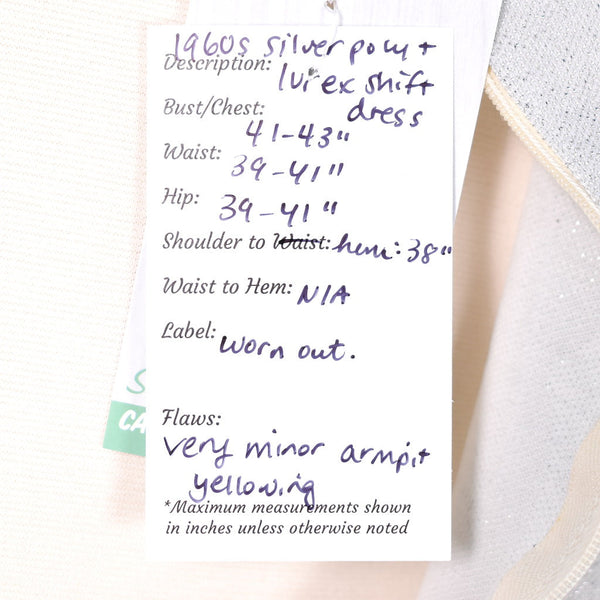 1960s silver poly +
Description: lurex shift
dress
Bust/Chest: 41-43"
Waist: 39-41"
Hip: 39-41"
Shoulder to Waist: hem: 38"
Waist to Hem: N/A
Label: worn out.
Flaws:
very minor armpit
yellowing
*Maximum measurements shown
in inches unless otherwise noted
S
CA